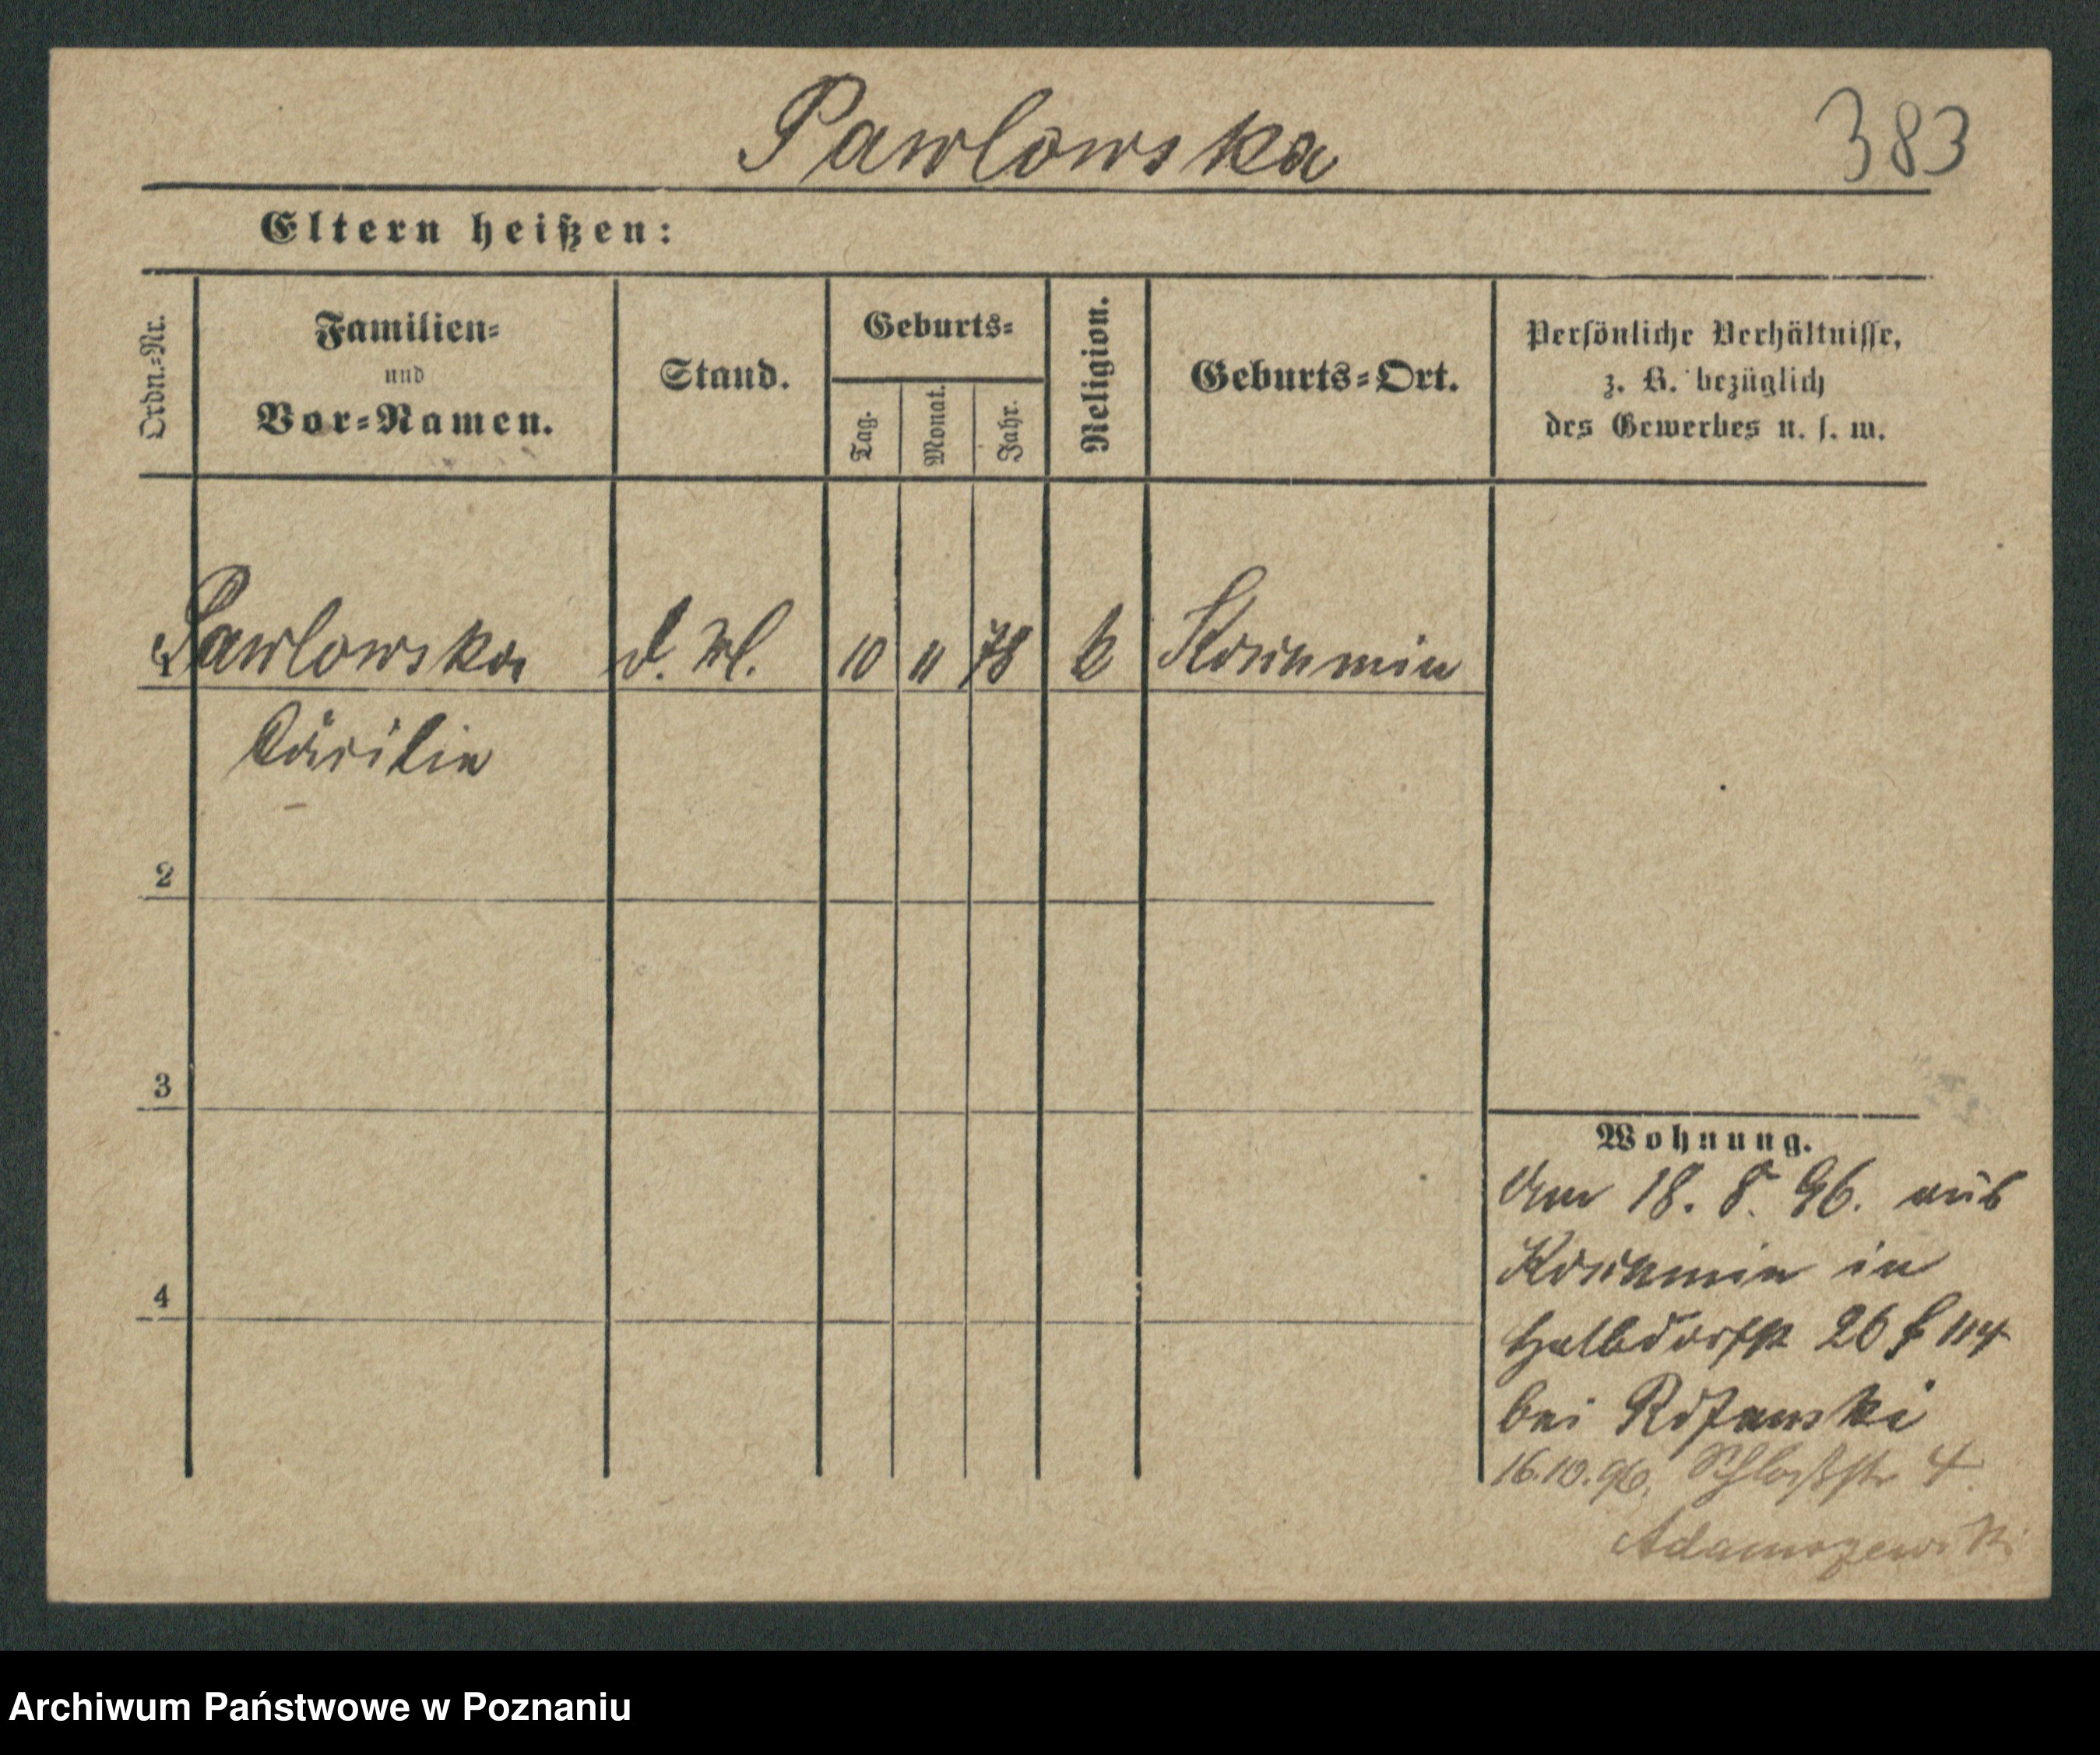 Pawlowska
383
Eltern heißen:
Ordn.=Nr.
Familien=
und
Vor=Namen.
Stand.
Geburts=
Tag.
Monat.
Jahr.
Religion.
Geburts=Ort.
Persönliche Verhältnisse,
z. B. bezüglich
des Gewerbes u. s. w.
1 Pawlowska d. M. 10 11 78 k Koschmin
Cäcilie
2
3
4
Wohnung.
Am 18. 8. 96. aus
Koschmin in
Halbdorfstr 26 114
bei Rozanski
16.10.96. Schloßstr 4.
Adamczewski
Archiwum Państwowe w Poznaniu